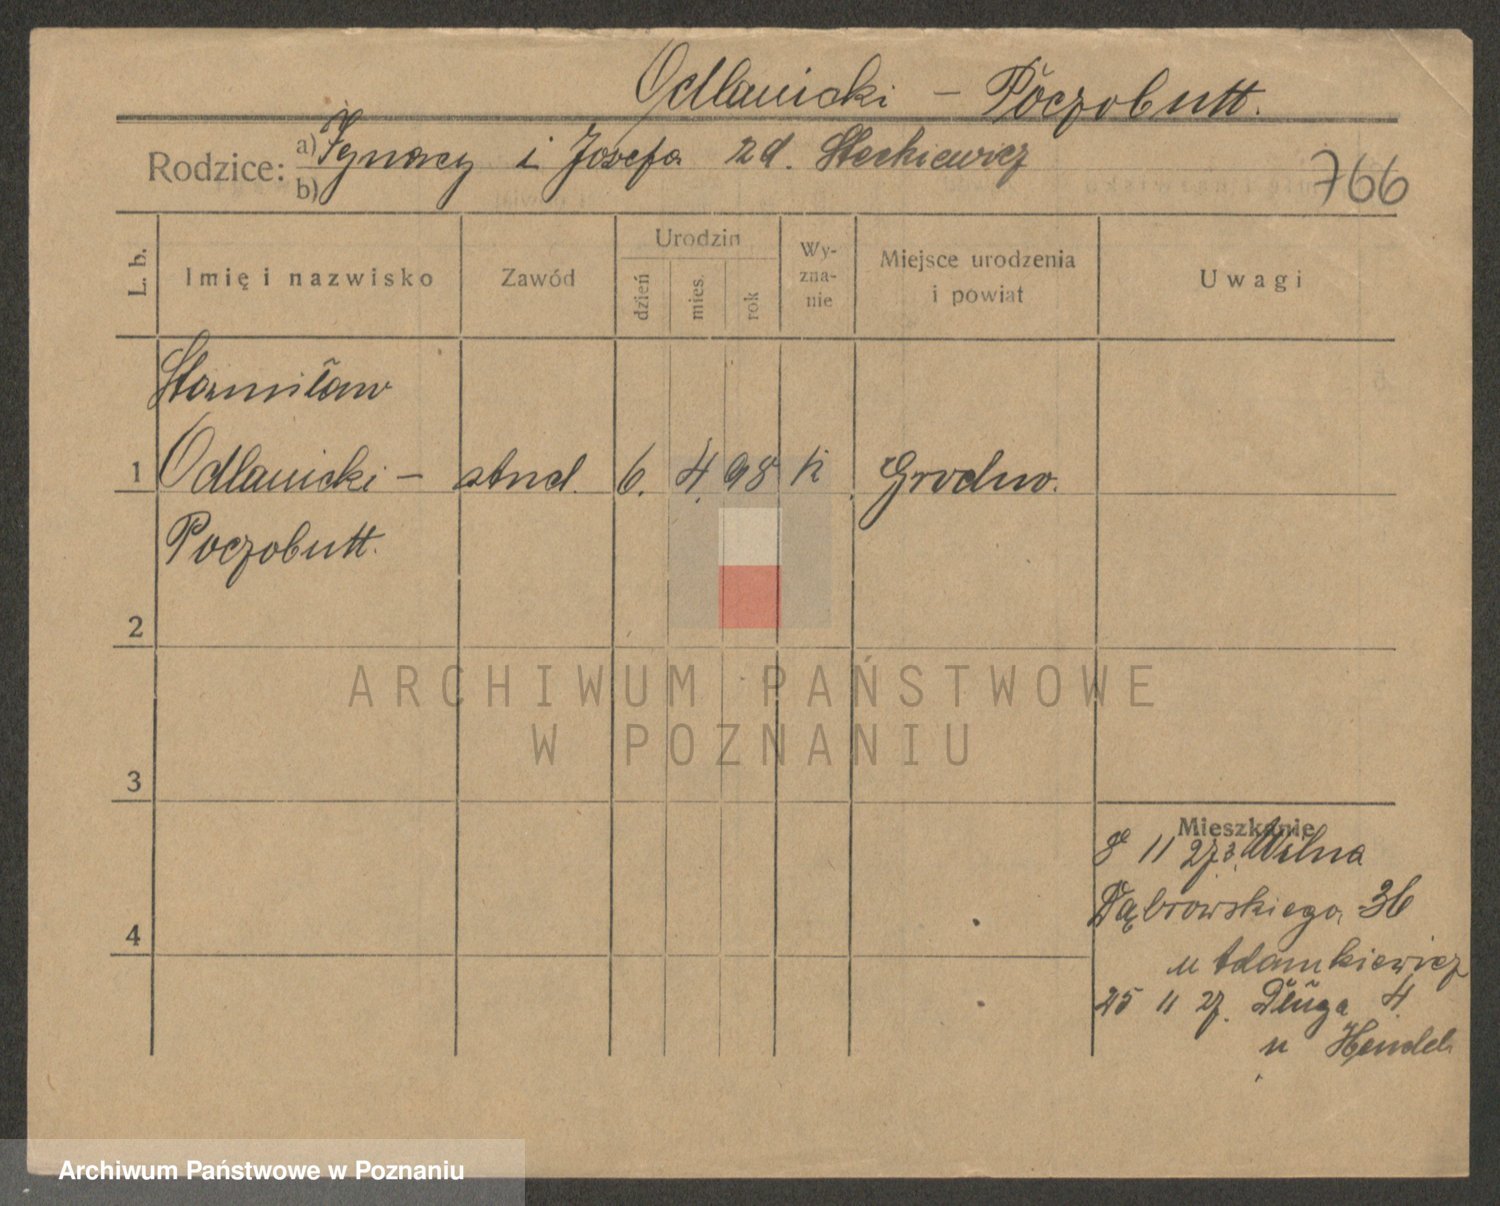 Odlanicki – Poczobutt.
Rodzice: a) Ignacy i Josefa zd. Steckiewicz
b)
766
L. b. Imię i nazwisko Zawód Urodzin dzień mies. rok Wy-zna-nie Miejsce urodzenia i powiat Uwagi
Stanisław
1 Odlanicki – stud. 6. 4. 98 k. Grodno.
Poczobutt.
2
3
4
Mieszkanie
8 11 27 z Wilna
Dąbrowskiego 36
u Adamkiewicz
25 11 27. Długa 4.
u Hendel
ARCHIWUM PAŃSTWOWE
W POZNANIU
Archiwum Państwowe w Poznaniu